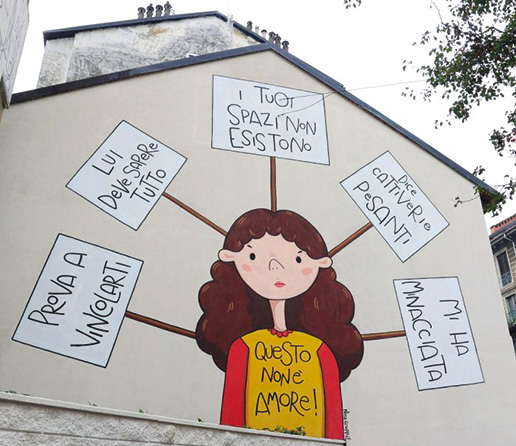 I TUOI
SPAZI NON
ESISTONO
LUI
DEVE SAPERE
TUTTO
DICE
CATTIVERIE
PESANTI
PROVA A
VINCOLARTI
MI HA
MINACCIATA
QUESTO
NON È
AMORE!